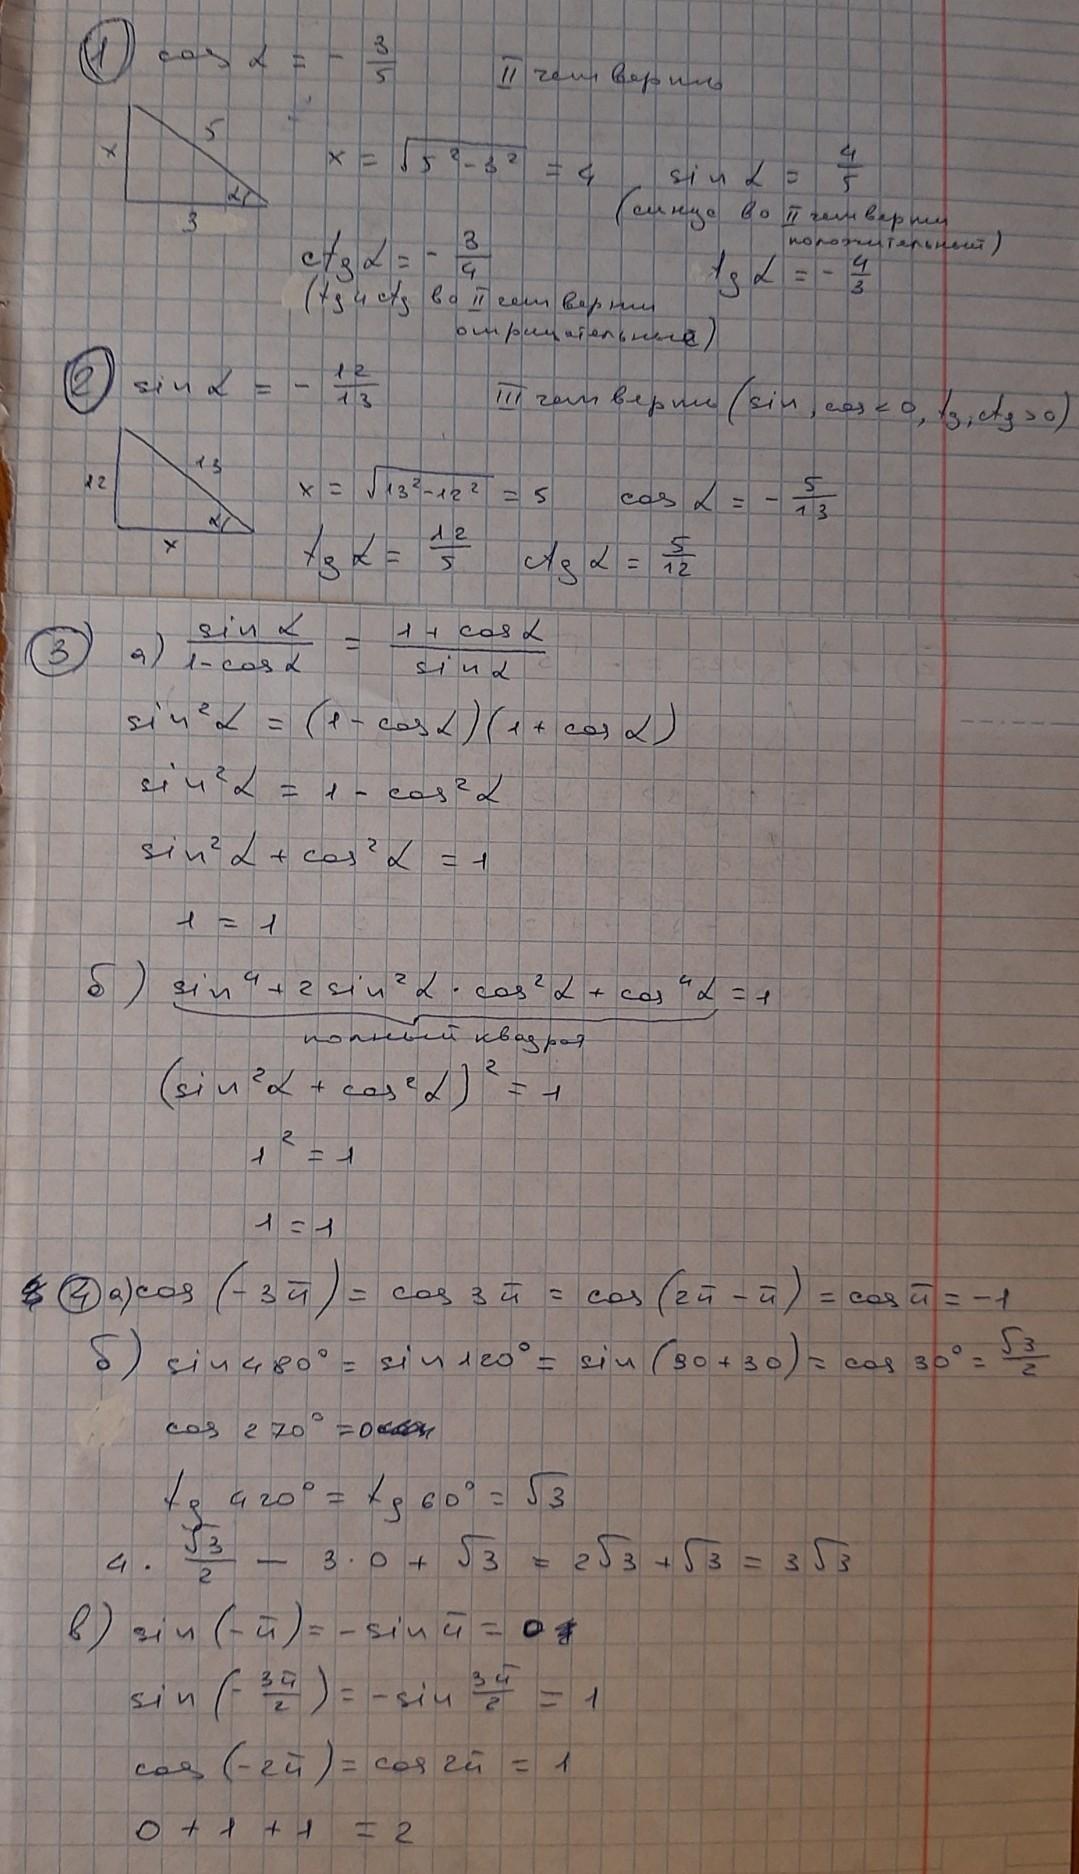 ① cos α = - 3/5 II четверть
x 5 3 α
x = √(5² - 3²) = 4 sin α = 4/5
(синус во II четверти положительный)
ctg α = - 3/4 tg α = - 4/3
(tg и ctg во II четверти
отрицательные)
② sin α = - 12/13 III четверти (sin, cos < 0, tg, ctg > 0)
12 13 x α
x = √(13² - 12²) = 5 cos α = - 5/13
tg α = 12/5 ctg α = 5/12
③ а) sin α / (1 - cos α) = (1 + cos α) / sin α
sin²α = (1 - cos α)(1 + cos α)
sin²α = 1 - cos²α
sin²α + cos²α = 1
1 = 1
б) sin⁴ + 2 sin²α · cos²α + cos⁴α = 1
полный квадрат
(sin²α + cos²α)² = 1
1² = 1
1 = 1
④ а) cos (-3π) = cos 3π = cos (2π - π) = cos π = -1
б) sin 480° = sin 120° = sin (90 + 30) = cos 30° = √3/2
cos 270° = 0
tg 420° = tg 60° = √3
4 · √3/2 - 3 · 0 + √3 = 2√3 + √3 = 3√3
в) sin (-π) = - sin π = 0
sin (- 3π/2) = - sin 3π/2 = 1
cos (-2π) = cos 2π = 1
0 + 1 + 1 = 2